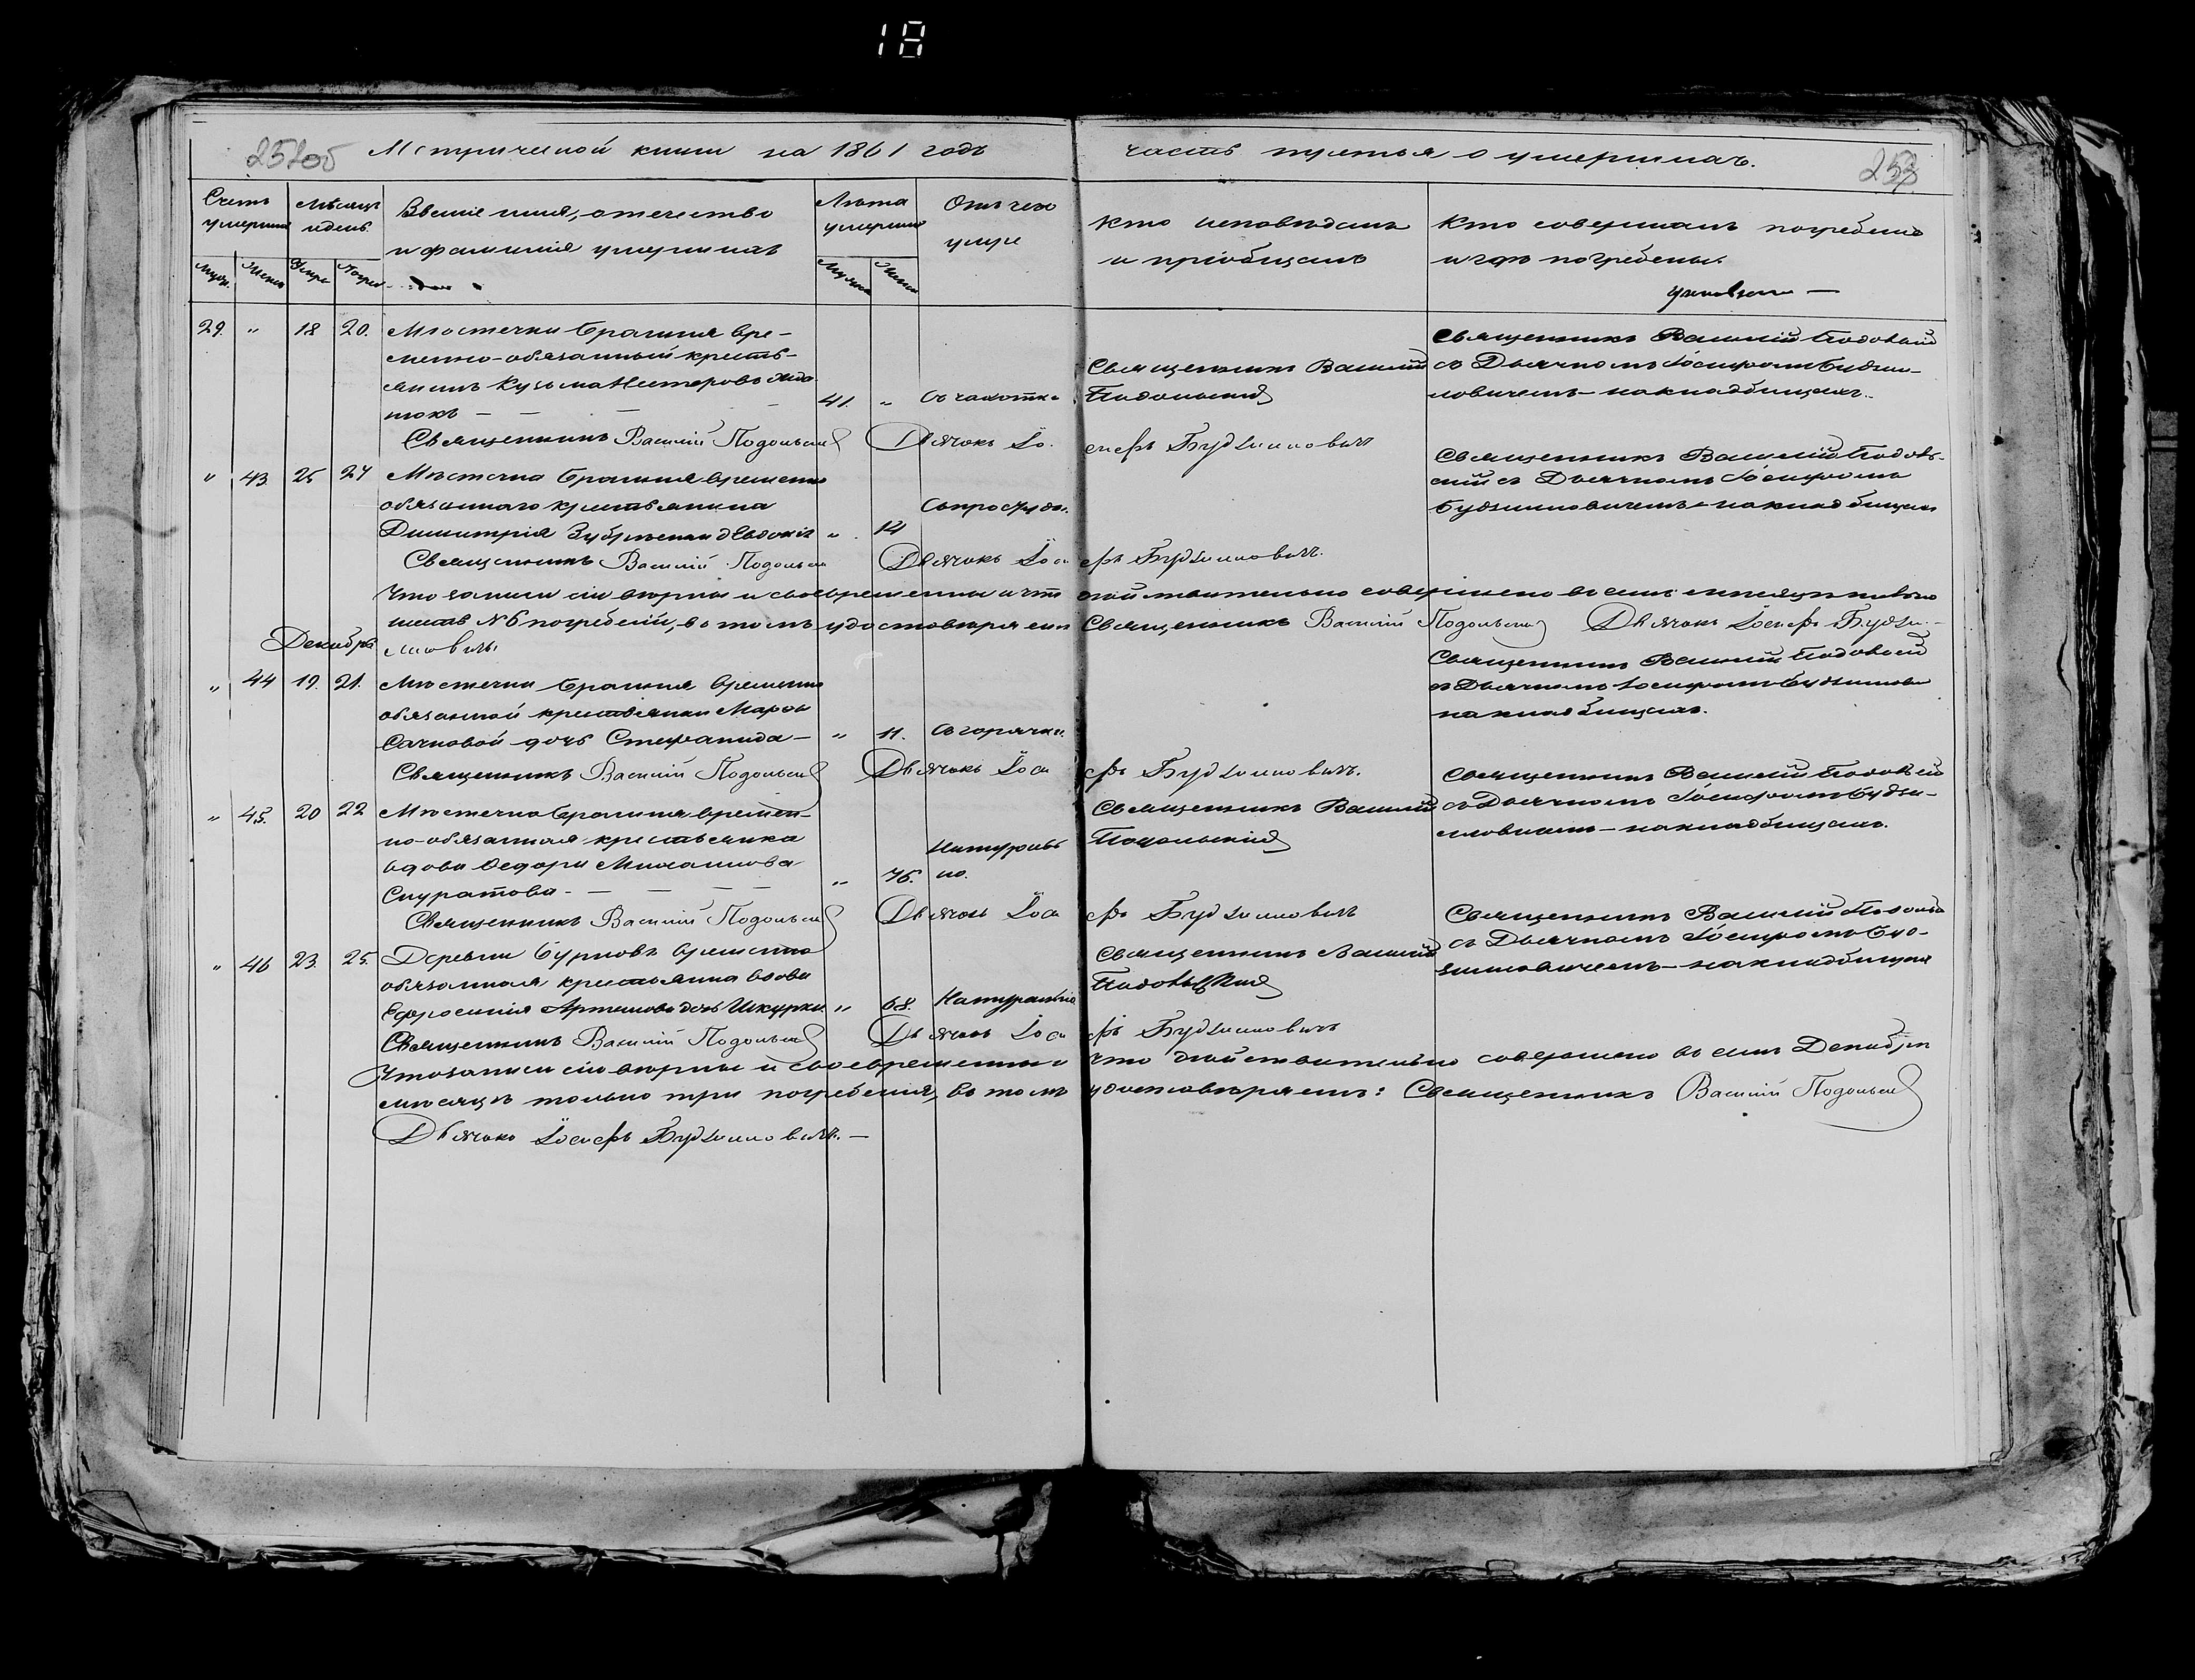 18
252об Метрической книги на 1861 годъ часть третья о умершихъ. 253
Счетъ умершихъ
Мѣсяцъ и день
Званіе имя, отечество и фамилія умершихъ
Лѣта умершихъ
Отъ чего умре
Кто исповѣдалъ и пріобщалъ
Кто совершалъ погребеніе и гдѣ погребены.
29. " 18 20. Мѣстечка Брагиня вре-
менно-обязанный кресть-
янинъ Кузьма Несторовъ
41. " Отъ чахотки
Священникъ Василій
Подольскій
Священникъ Василій Подольскій
съ Дьячкомъ Іосифомъ Будзи-
ловичемъ на кладбищахъ.
Священникъ Василій Подольскій Дьячокъ Іосифъ Будзиловичъ
" 43. 25 27 Мѣстечка Брагиня временно
обязаннаго крестьянина
Димитрія дочь Евдокія " 12
Отъ простуды.
Священникъ Василій Подоль-
скій съ Дьячкомъ Іосифомъ
Будзиловичемъ на кладбищахъ
Священникъ Василій Подольскій Дьячокъ Іосифъ Будзиловичъ.
Что записи сіи вѣрны и своевременны и что дѣйствительно совершено въ семъ мѣсяцѣ
шесть № 6 погребеній, въ томъ удостовѣряемъ Священникъ Василій Подольскій Дьячокъ Іосифъ Будзи-
ловичъ.
Декабрь
" 44 19. 21. Мѣстечка Брагиня временно
обязанной крестьянки Марѳы
дочь Стефанида — " 11. Отъ горячки.
Священникъ Василій Подольскій
съ Дьячкомъ Іосифомъ Будзилови
на кладбищахъ.
Священникъ Василій Подольскій Дьячокъ Іосифъ Будзиловичъ.
" 45. 20 22 Мѣстечка Брагиня времен-
но-обязанная крестьянка
вдова Ѳедора Михайлова
Скуратова " 75. Натураль
но.
Священникъ Василій
Подольскій
Священникъ Василій Подольскій
съ Дьячкомъ Іосифомъ Будзи-
ловичемъ — на кладбищахъ.
Священникъ Василій Подольскій Дьячокъ Іосифъ Будзиловичъ
" 46 23. 25. Деревни временно
обязанная крестьянка вдова
Ефросинія Артемова дочь Шкурки " 68. Натурально
Священникъ Василій
Подольскій
Священникъ Василій Подольскій
съ Дьячкомъ Іосифомъ Буд-
зиловичемъ — на кладбищахъ
Священникъ Василій Подольскій Дьячокъ Іосифъ Будзиловичъ
Что записи сіи вѣрны и своевременны и что дѣйствительно совершено въ семъ Декабрѣ
мѣсяцѣ только три погребенія, въ томъ удостовѣряемъ: Священникъ Василій Подольскій
Дьячокъ Іосифъ Будзиловичъ. —